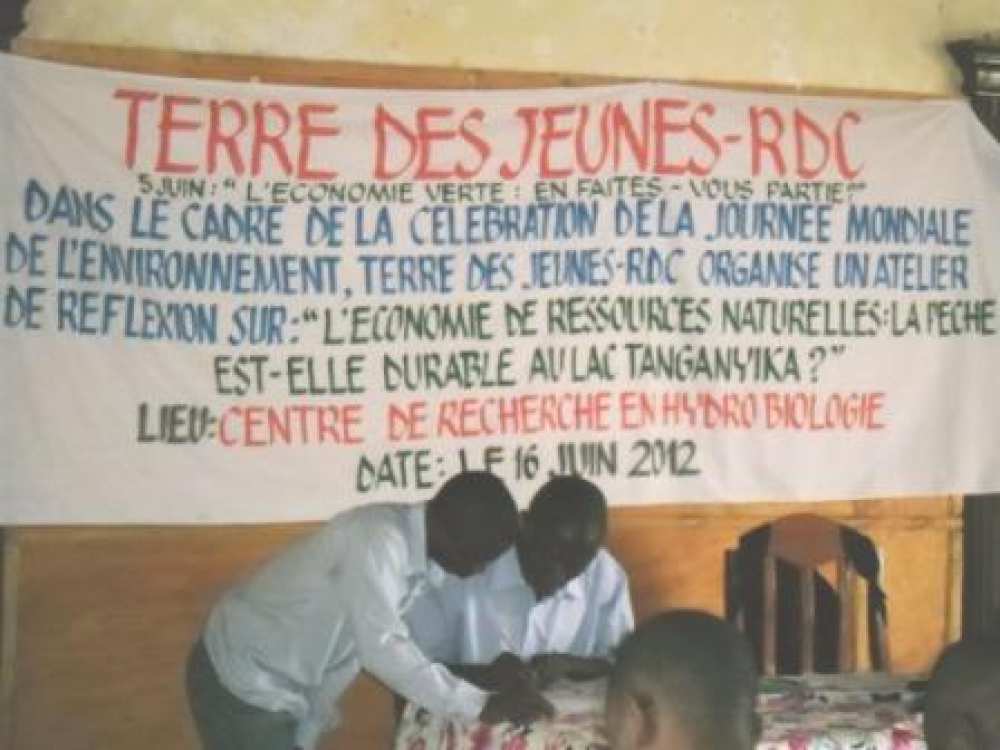 TERRE DES JEUNES-RDC
5 JUIN: "L'ECONOMIE VERTE: EN FAITES-VOUS PARTIE?"
DANS LE CADRE DE LA CELEBRATION DE LA JOURNEE MONDIALE
DE L'ENVIRONNEMENT, TERRE DES JEUNES-RDC ORGANISE UN ATELIER
DE REFLEXION SUR: "L'ECONOMIE DE RESSOURCES NATURELLES: LA PECHE
EST-ELLE DURABLE AU LAC TANGANYIKA?"
LIEU: CENTRE DE RECHERCHE EN HYDRO BIOLOGIE
DATE: LE 16 JUIN 2012